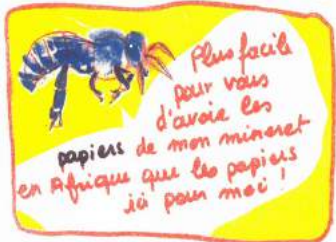 Plus facile
pour vous
d'avoir les
papiers de mon minerai
en Afrique que les papiers
ici pour moi !